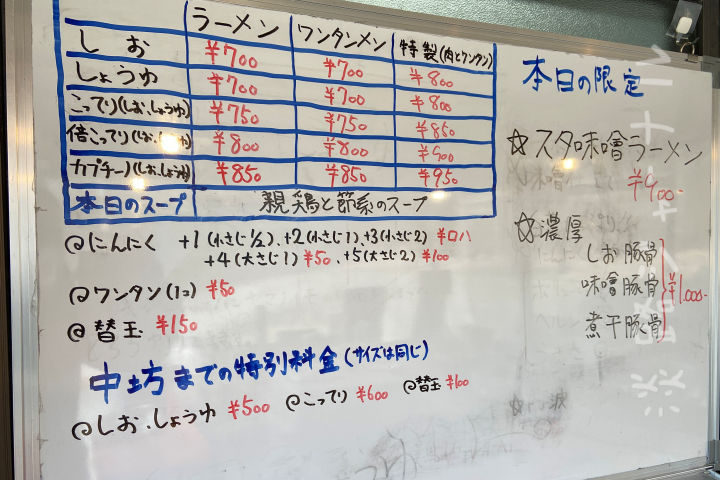 ラーメン ワンタンメン 特製(肉とワンタン)
しお ¥700 ¥700 ¥800
しょうゆ ¥700 ¥700 ¥800
こってり(しお、しょうゆ) ¥750 ¥750 ¥850
倍こってり(しお、しょうゆ) ¥800 ¥800 ¥900
カプチーノ(しお、しょうゆ) ¥850 ¥850 ¥950
本日のスープ 親鶏と節系のスープ
@にんにく +1(小さじ1/2)、+2(小さじ1)、+3(小さじ2) ¥口ハ
+4(大さじ1) ¥50、+5(大さじ2) ¥100
@ワンタン(1コ) ¥50
@替玉 ¥150
中坊までの特別料金(サイズは同じ)
@しお、しょうゆ ¥500 @こってり ¥600 @替玉 ¥100
本日の限定
☆スタ味噌ラーメン
¥900-
☆濃厚
しお豚骨
味噌豚骨 ¥1.000-
煮干豚骨